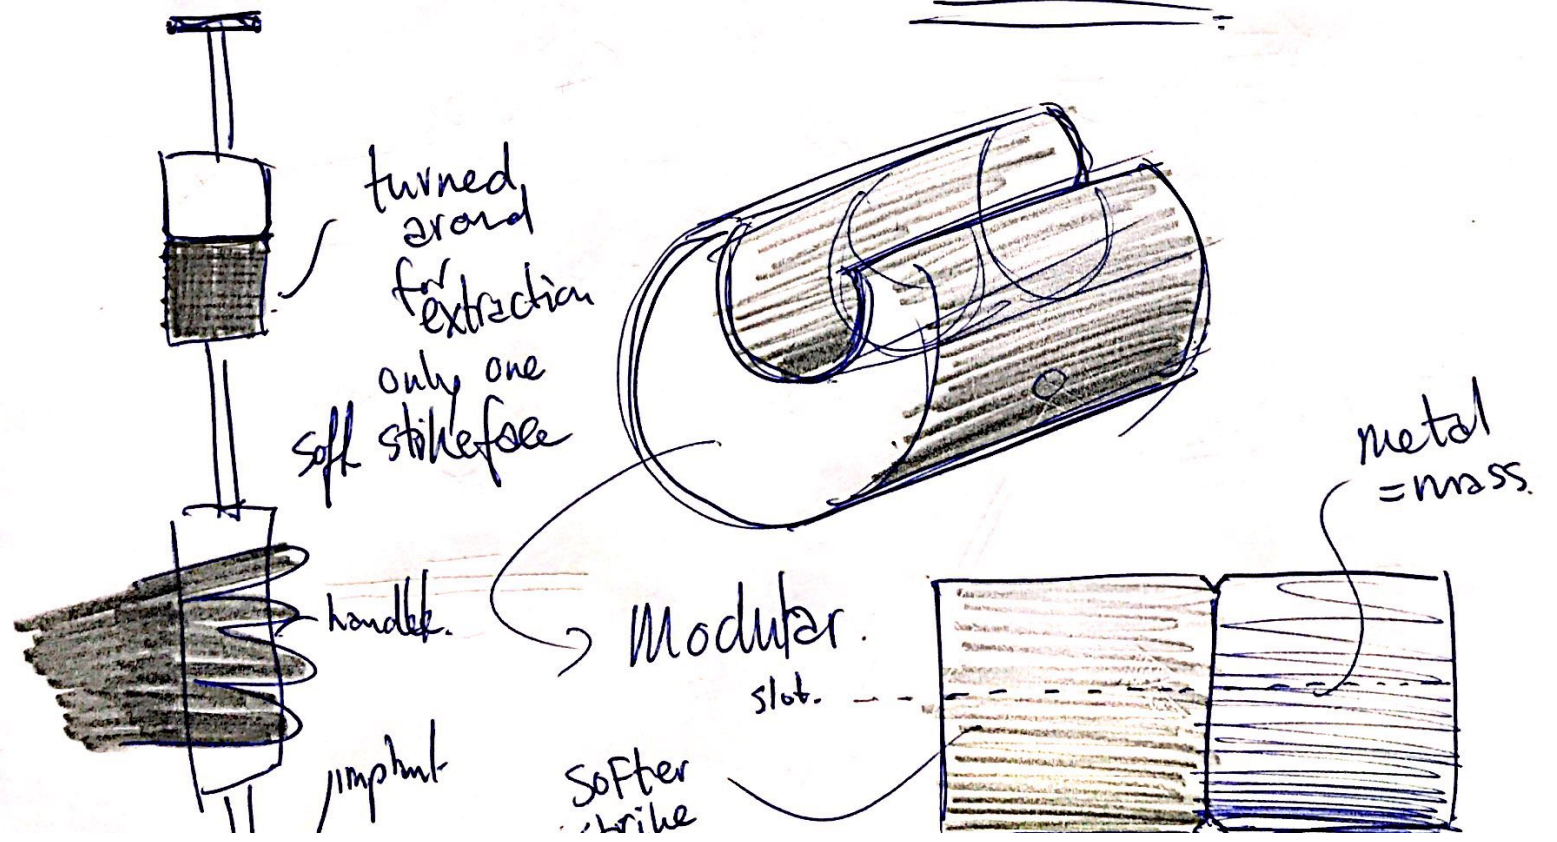 turned
around
for
extraction
only one
soft strikeface
handle.
implant
Modular.
slot.
softer
strike
metal
= mass.